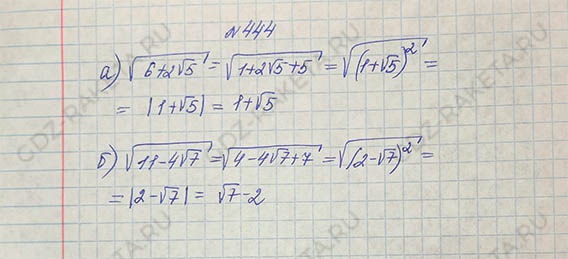 №444
а) √(6+2√5) = √(1+2√5+5) = √((1+√5)²) =
= |1+√5| = 1+√5
б) √(11-4√7) = √(4-4√7+7) = √((2-√7)²) =
= |2-√7| = √7-2
GDZ-RAKETA.RU